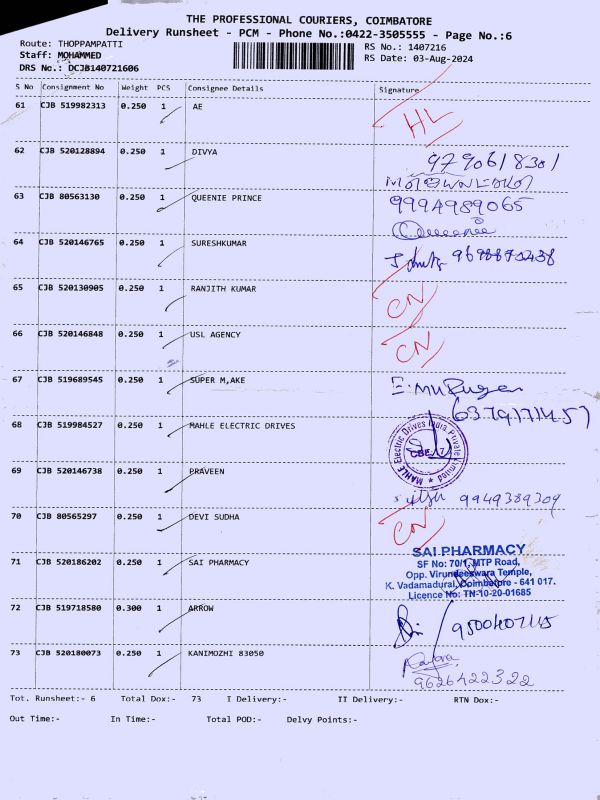 THE PROFESSIONAL COURIERS, COIMBATORE
Delivery Runsheet - PCM - Phone No.:0422-3505555 - Page No.:6
Route: THOPPAMPATTI
RS No.: 1407216
Staff: MOHAMMED
RS Date: 03-Aug-2024
DRS No.: DCJB140721606
S No Consignment No Weight PCS Consignee Details Signature
61 CJB 519982313 0.250 1 AE HL
62 CJB 520128894 0.250 1 DIVYA 9790618301
63 CJB 80563130 0.250 1 QUEENIE PRINCE 9994989065
Queenie
64 CJB 520146765 0.250 1 SURESHKUMAR
65 CJB 520130905 0.250 1 RANJITH KUMAR CN
66 CJB 520146848 0.250 1 USL AGENCY CN
67 CJB 519689545 0.250 1 SUPER M,AKE E. Murugan
68 CJB 519984527 0.250 1 MAHLE ELECTRIC DRIVES
MAHLE Electric Drives India Private Limited
CBE
69 CJB 520146738 0.250 1 PRAVEEN 9949389309
70 CJB 80565297 0.250 1 DEVI SUDHA CN
71 CJB 520186202 0.250 1 SAI PHARMACY
SAI PHARMACY
SF No: 70/1, MTP Road,
Opp. Virundeeswara Temple,
K. Vadamadurai, Coimbatore - 641 017.
Licence No: TN-10-20-01685
72 CJB 519718580 0.300 1 ARROW
73 CJB 520180073 0.250 1 KANIMOZHI 83050
9626422322
Tot. Runsheet:- 6 Total Dox:- 73 I Delivery:- II Delivery:- RTN Dox:-
Out Time:- In Time:- Total POD:- Delvy Points:-